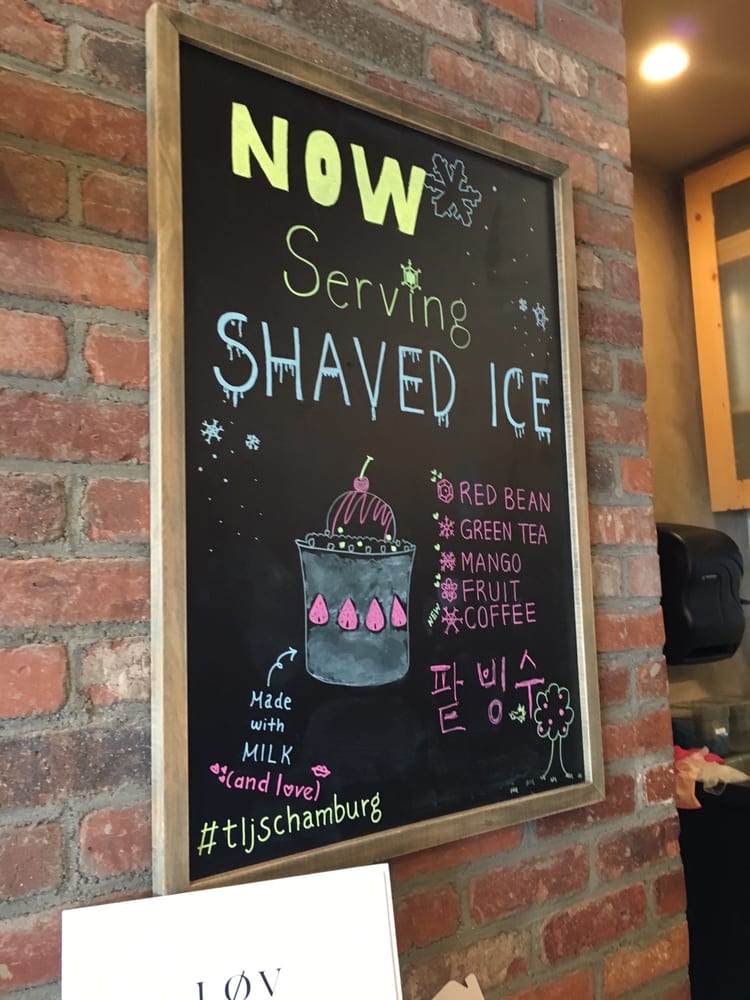 NOW
Serving
SHAVED ICE
RED BEAN
GREEN TEA
MANGO
FRUIT
NEW COFFEE
팥빙수
Made
with
MILK
(and love)
#tljschamburg
LØV